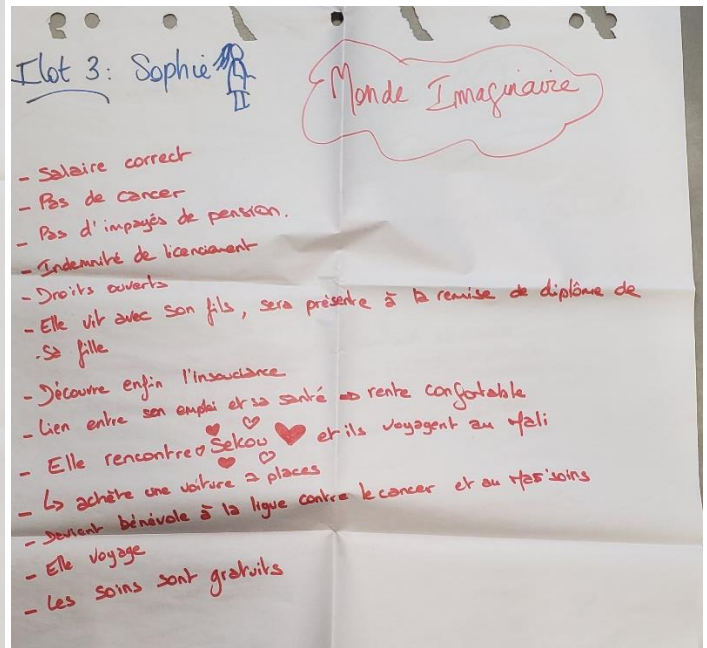 Ilot 3: Sophie
Monde Imaginaire
- Salaire correct
- Pas de cancer
- Pas d'impayés de pension.
- Indemnité de licenciement
- Droits ouverts
- Elle vit avec son fils, sera présente à la remise de diplôme de
sa fille
- Découvre enfin l'insouciance
- Lien entre son emploi et sa santé => rente confortable
- Elle rencontre Sekou et ils voyagent au Mali
- ↳ achète une voiture 2 places
- Devient bénévole à la ligue contre le cancer et au Mas'soins
- Elle voyage
- Les soins sont gratuits